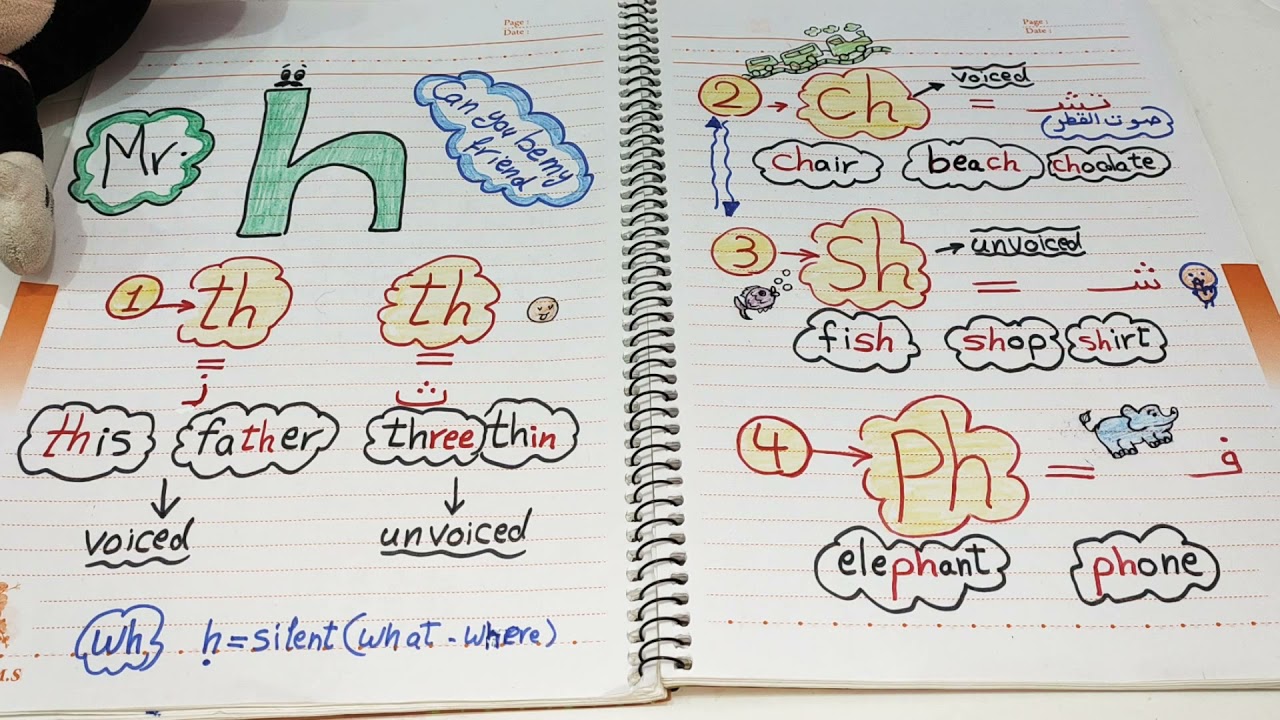 Page :
Date :
Mr.
h
Can you be my
friend
1 → th
th
=
=
ز
ث
this
father
three
thin
voiced
unvoiced
wh h = silent (what - where)
M.S
Page :
Date :
2 → ch → voiced = تشـ
صوت القطر
chair
beach
chocolate
3 → sh → unvoiced
= شـ
fish
shop
shirt
4 → Ph = فـ
elephant
phone